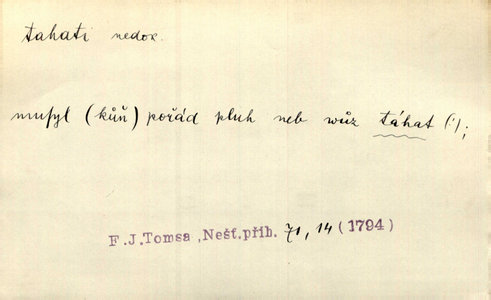 tahati nedok.
musyl (kůň) pořád pluh neb wůz táhat (:);
F.J.Tomsa, Nešť.příh. 71, 14 (1794)